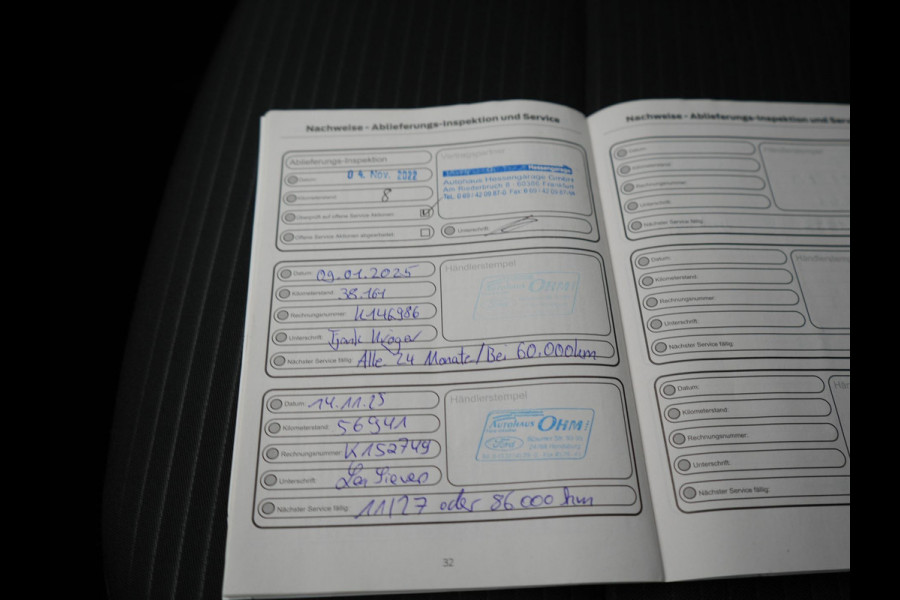 Nachweise - Ablieferungs-Inspektion und Service
Ablieferungs-Inspektion
Datum: 04. Nov. 2022
Kilometerstand: 8
Überprüft auf offene Service Aktionen
Offene Service Aktionen abgearbeitet
Vertragspartner
Autohaus Hessengarage GmbH
Am Riederbruch 8 - 60388 Frankfurt
Unterschrift:
Datum: 09.01.2025
Kilometerstand: 38.161
Rechnungsnummer: K146986
Unterschrift:
Nächster Service fällig: Alle 24 Monate/Bei 60.000km
Händlerstempel
OHM
Datum: 14.11.25
Kilometerstand: 56941
Rechnungsnummer: K152749
Unterschrift:
Nächster Service fällig: 11/27 oder 86000 km
Händlerstempel
Autohaus OHM
Ford
32
Nachweise - Ablieferungs-Inspektion und Ser
Datum:
Kilometerstand:
Rechnungsnummer:
Unterschrift:
Nächster Service fällig:
Händlerstempel
Datum:
Kilometerstand:
Rechnungsnummer:
Unterschrift:
Nächster Service fällig:
Händlerstempel
Datum:
Kilometerstand:
Rechnungsnummer:
Unterschrift:
Nächster Service fällig:
Händ